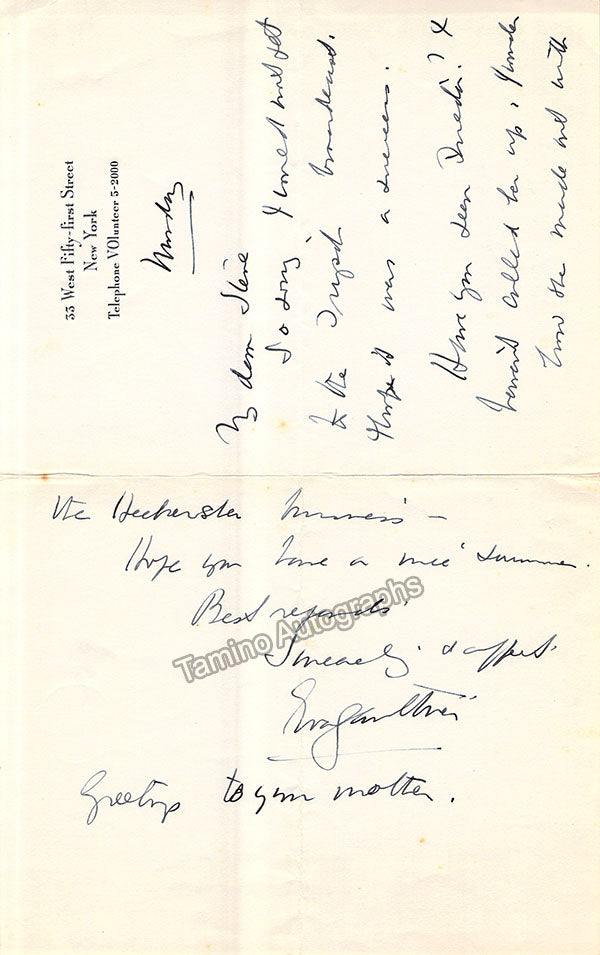 33 West Fifty-first Street
New York
Telephone VOlunteer 5-2000
Monday
My dear Steve
So sorry I could not get
to the broadcast.
I hope it was a success.
Have you seen ? I
called her up, I wonder
how she made out with
the Heckscher business –
Hope you have a nice summer.
Best regards.
Sincerely & affect.
Eva Gauthier
Greetings to your mother.
Tamino Autographs